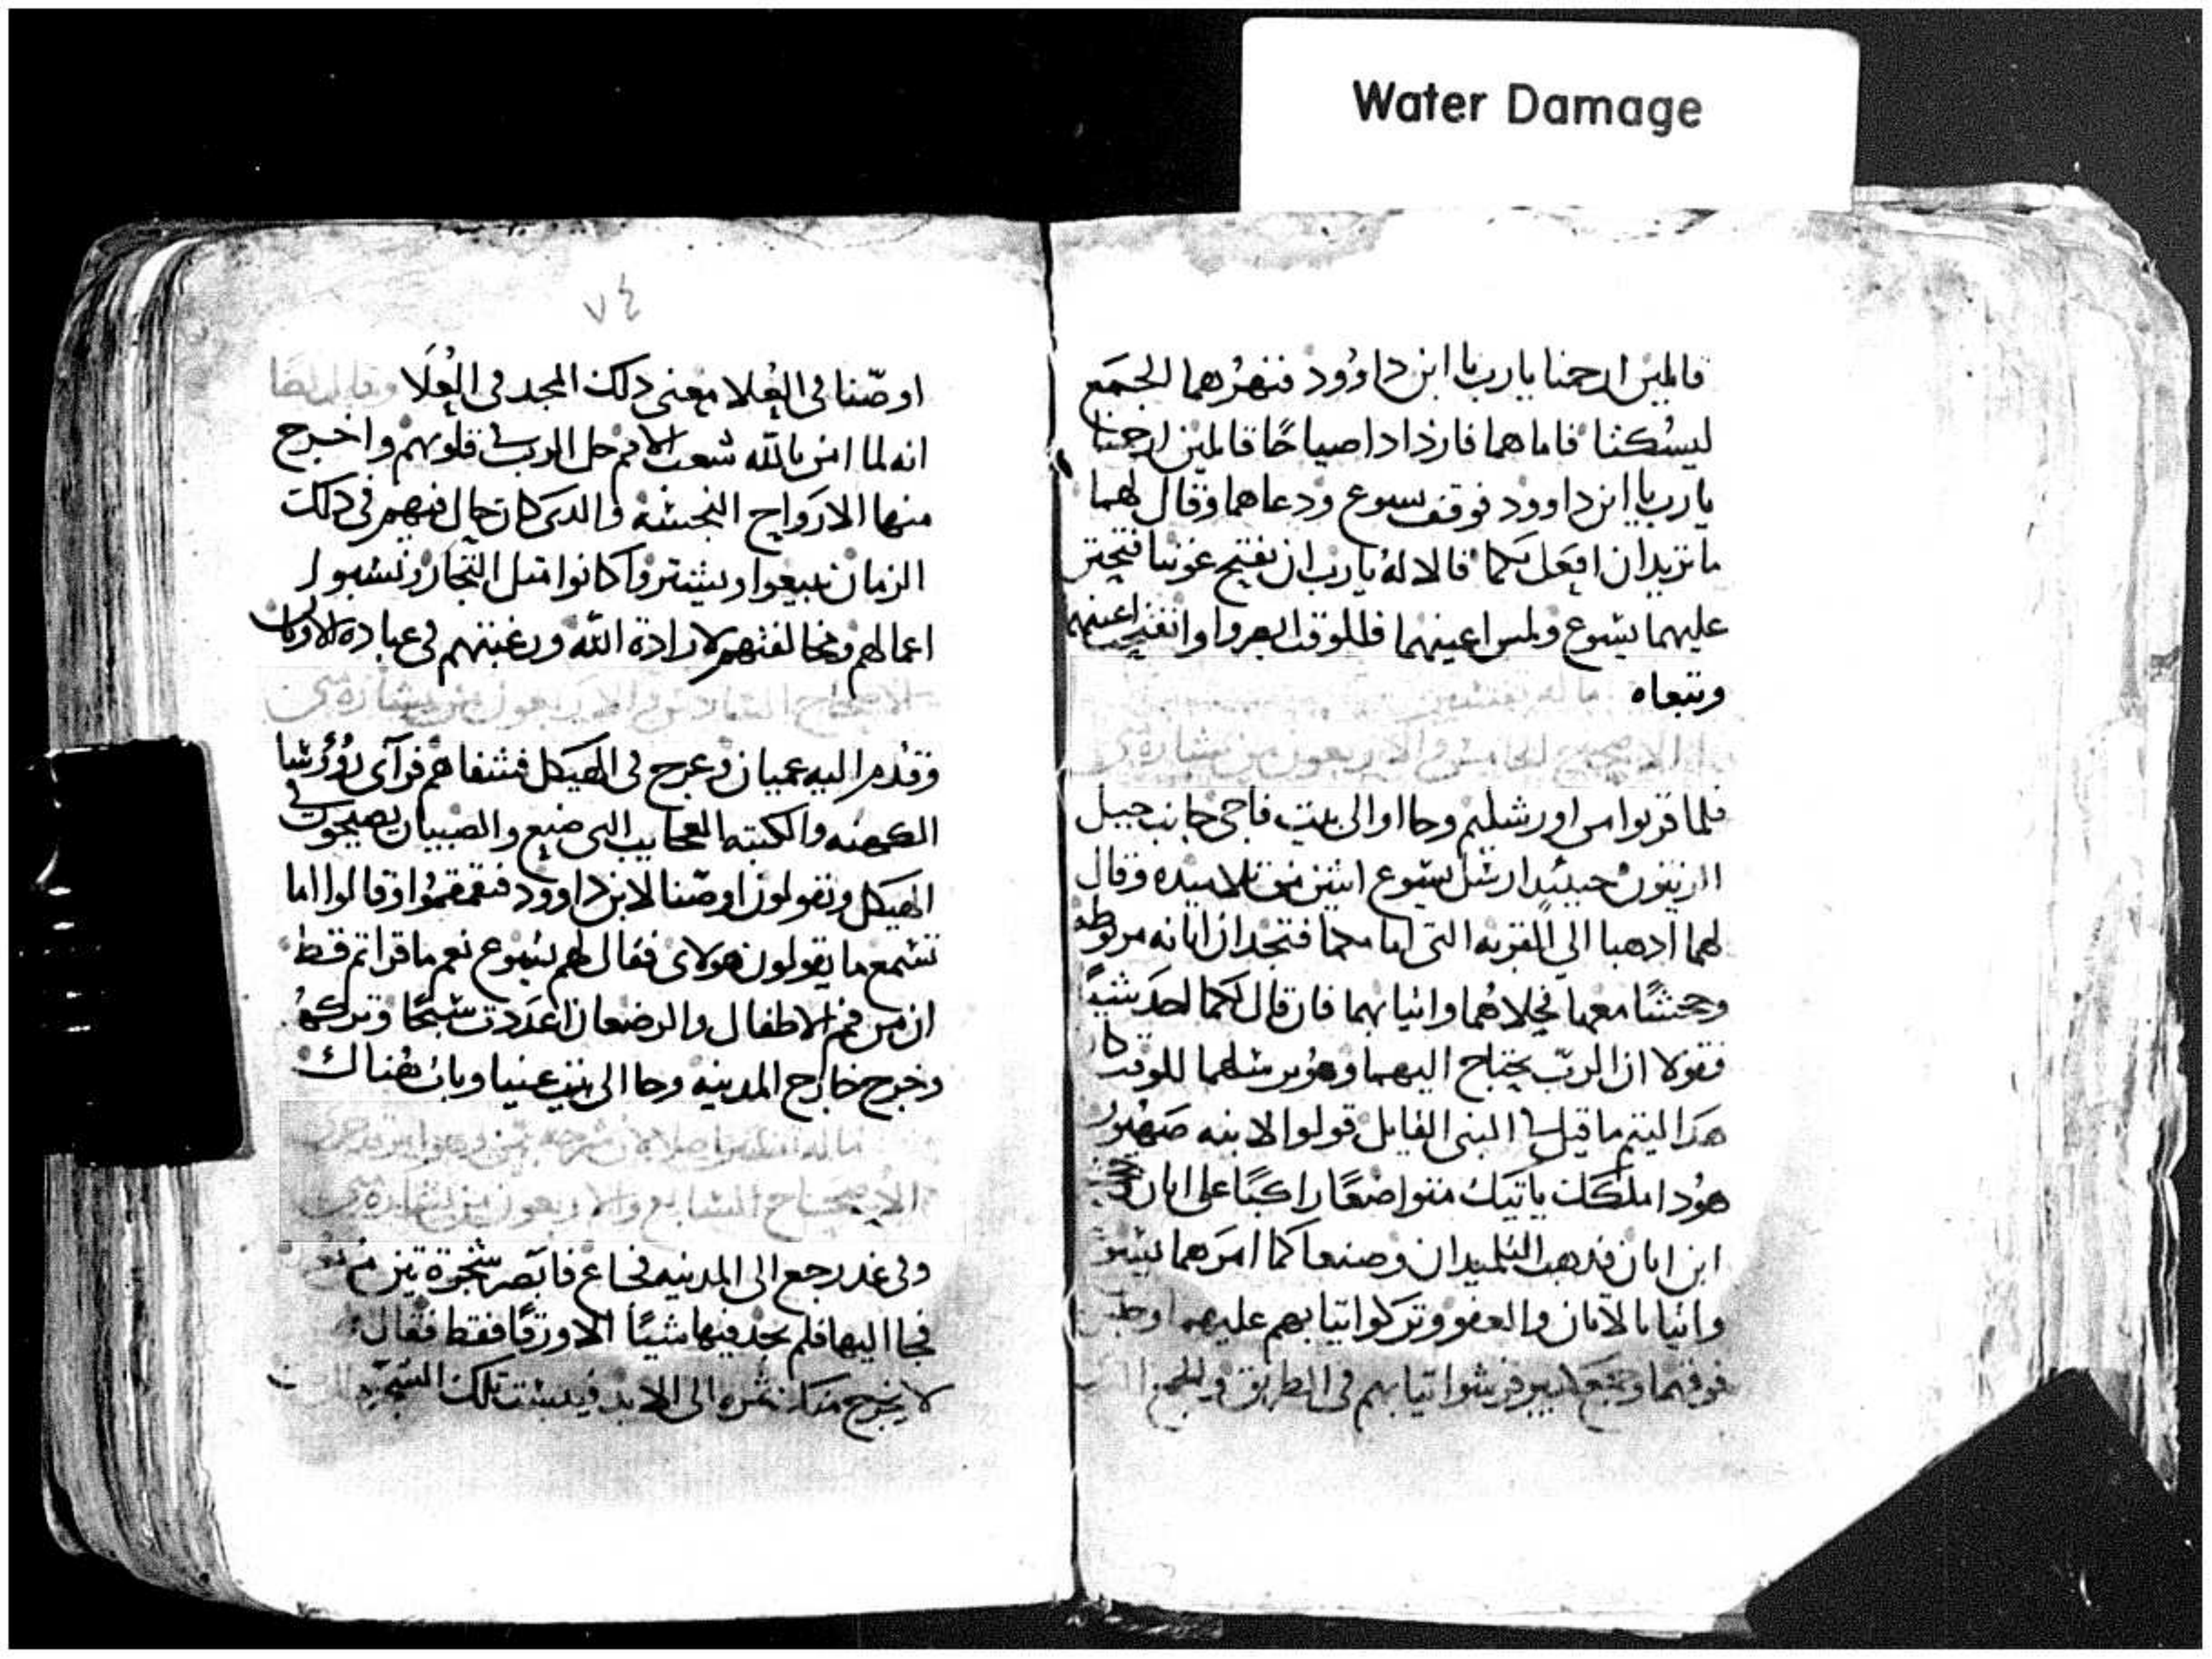 Water Damage
قايلين ارحمنا يارب يا ابن داوود فنهرهما الجمع
ليسكتا فاما هما فازدادا صياحًا قايلين ارحمنا
يارب يا ابن داوود فوقف يسوع ودعاهما وقال لهما
ما تريدان افعل بكما قالا له يارب ان تفتح عوننا فتحنن
عليهما يسوع ولمس اعينهما فللوقت ابصروا وانفتحت اعينهما
وتبعاه
الاصحاح الخامس والاربعون من بشارة متى
فلما قربوا من اورشليم وجااوا الى بيت فاجى جانب جبل
الزيتون حينيد ارسل يسوع اتنين من تلاميده وقال
لهما ادهبا الى القريه التى امامكما فتجدان اتانه مربوطه
وجحشًا معها فحلاهما واتيا بهما فان قال لكما احد شيًا
فقولا ان الرب يحتاج اليهما وهو يرسلهما للوقت كان
هدا ليتم ما قيل في النبى القايل قولوا لابنه صهيون
هودا ملكك ياتيك متواضعًا راكبًا على اتان
ابن اتان فدهب التلميدان وصنعا كما امرهما يسوع
واتيا بالاتان والعفو وتركوا تيابهم عليهم
فوقهما فرشوا تيابهم فى الطريق والجمع
٧٤
اوصنا فى العلا معنى دلك المجد فى العلا وقال ايضا
انه لما امن بالله شعب الامم حل الرب في قلوبهم واخرج
منها الارواح النجسه والدى كان حال فيهم فى دلك
الزمان يبيعوا ويشتروا كانوا متل التجار
اعمالهم ومخالفتهم لارادة الله ورغبتهم فى عبادة الاوتان
الاصحاح السادس والاربعون من بشارة متى
وقدم اليه عميان وعرج فى الهيكل فشفاهم فرآى رؤوسا
الكهنه والكتبه العجايب التى صنع والصبيان يصيحون في
الهيكل ويقولون اوصنا لابن داوود فتقمقموا وقالوا اما
تسمع ما يقولون هولاى فقال لهم يسوع نعم ما قراتم قط
ان من فم الاطفال والرضعان اعددت سبحًا وتركهم
وخرج خارج المدينه وجا الى بيت عنيا وبات هناك
الاصحاح السابع والاربعون من بشارة متى
وفى غد رجع الى المدينه فجاع فابصر شجرة تين
فجا اليها فلم يجد فيها شيًا الا ورقًا فقط فقال
لا يخرج منك تمره الى الابد فيبست تلك الشجره